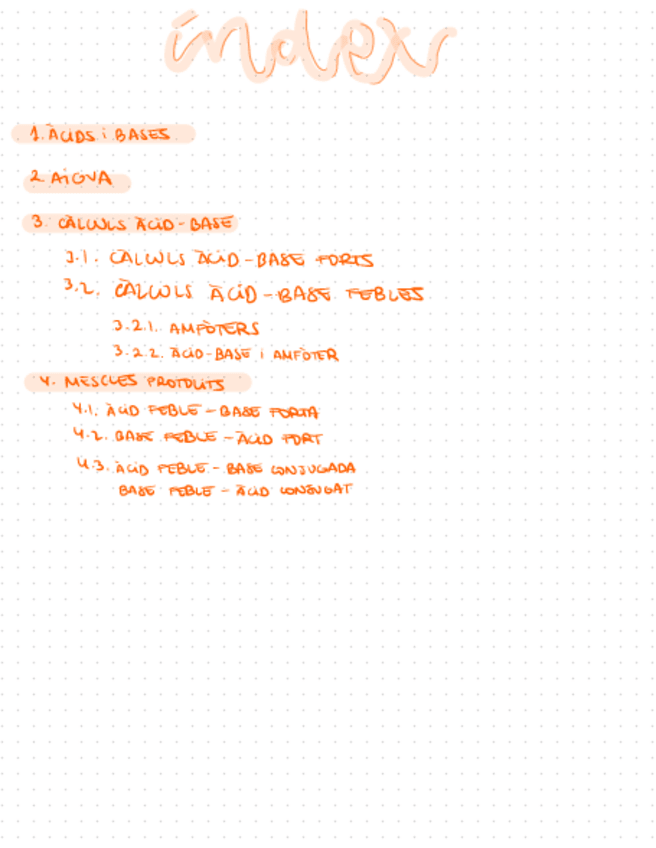 índex
1. ÀCIDS i BASES
2 AIGUA
3. CÀLCULS ÀCID-BASE
3.1. CÀLCULS ÀCID-BASE FORTS
3.2. CÀLCULS ÀCID-BASE FEBLES
3.2.1. AMFÒTERS
3.2.2. ÀCID-BASE i AMFÒTER
4. MESCLES PROTOLITS
4.1. ÀCID FEBLE - BASE FORTA
4.2. BASE FEBLE - ÀCID FORT
4.3. ÀCID FEBLE - BASE CONJUGADA
BASE FEBLE - ÀCID CONJUGAT